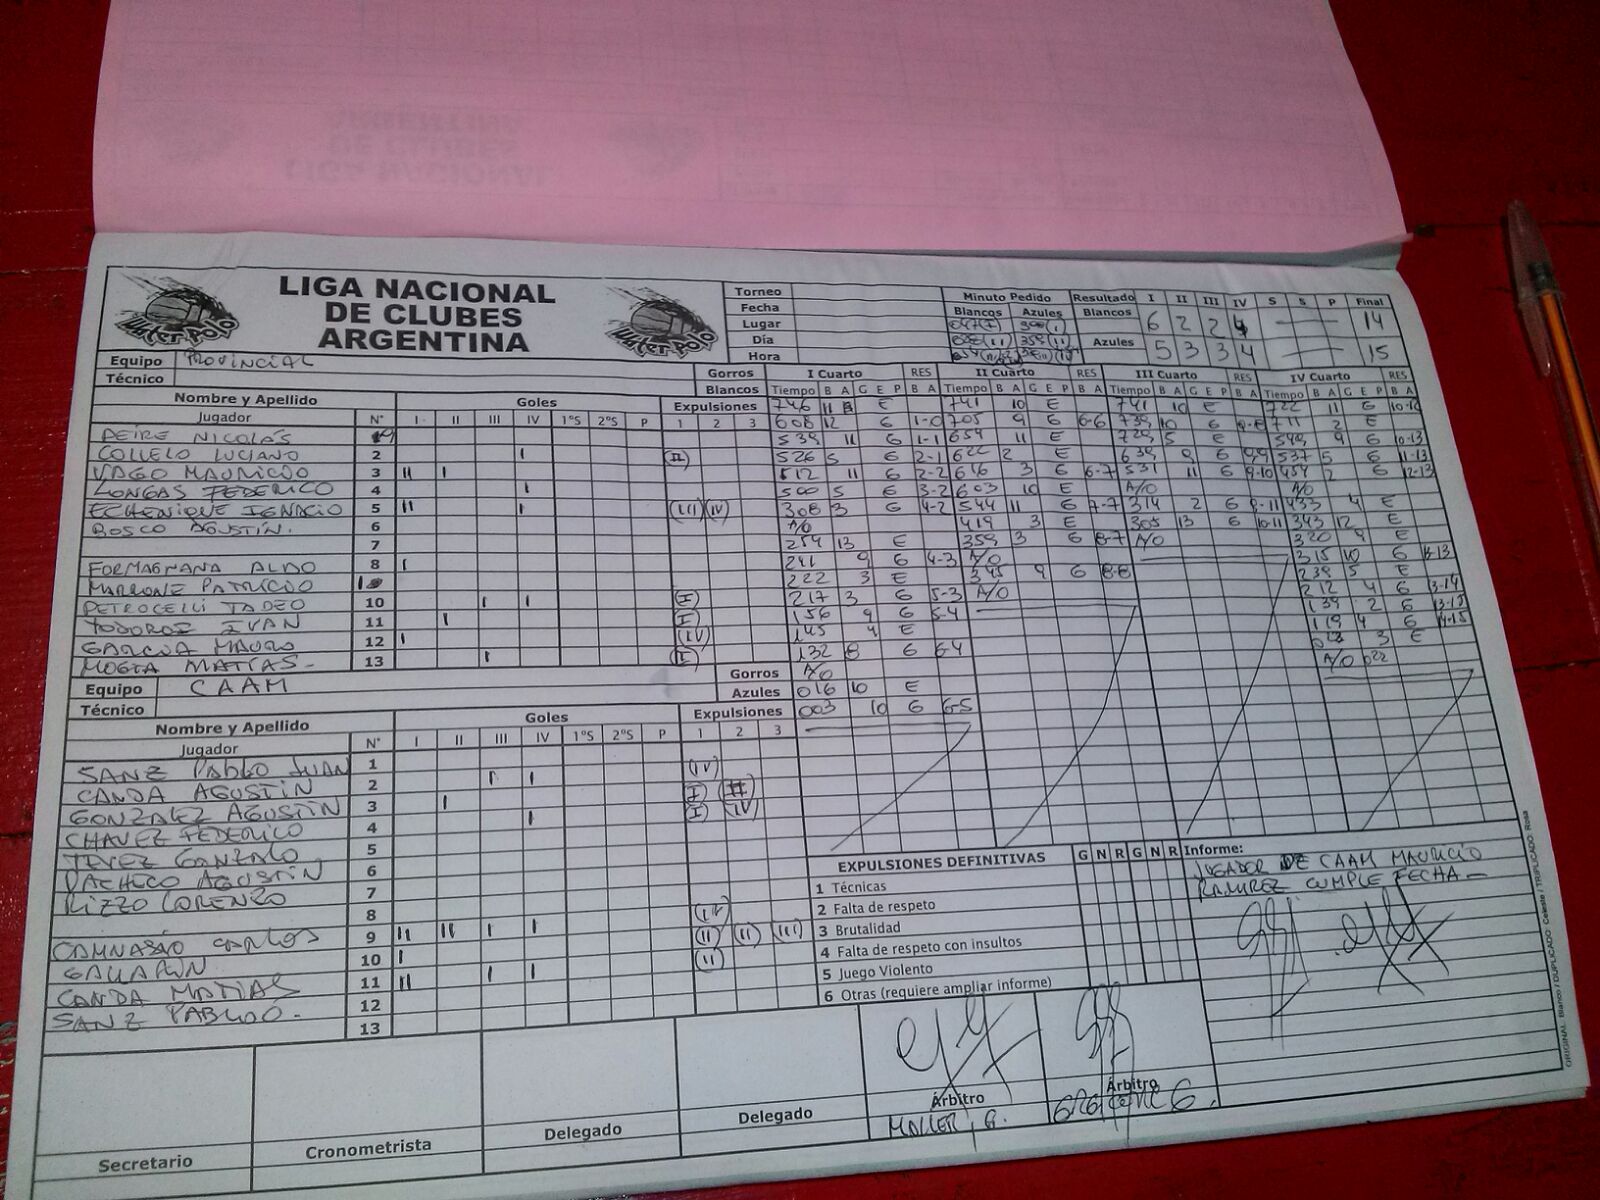 LIGA NACIONAL
DE CLUBES
ARGENTINA
Water Polo
Water Polo
Torneo
Fecha
Lugar
Día
Hora
Minuto Pedido
Blancos Azules
Resultado I II III IV S S P Final
Blancos 6 2 2 4 14
Azules 5 3 3 4 15
Equipo PROVINCIAL
Técnico
Gorros
Blancos
I Cuarto RES II Cuarto RES III Cuarto RES IV Cuarto RES
Tiempo B A G E P B A Tiempo B A G E P B A Tiempo B A G E P B A Tiempo B A G E P B A
Nombre y Apellido
Jugador
N° Goles Expulsiones
I II III IV 1°S 2°S P 1 2 3
DEIRE NICOLÁS
COLLELO LUCIANO 2
VAGO MAURICIO 3
LONGAS FEDERICO 4
ECHENIQUE IGNACIO 5
BOSCO AGUSTIN. 6
7
FORMAGNANA ALDO 8
MARRONE PATRICIO
PETROCELLI TADEO 10
IVAN 11
GARCIA MAURO 12
MATIAS- 13
Equipo CAAM
Técnico
Gorros
Azules
Nombre y Apellido
Jugador
N° Goles Expulsiones
I II III IV 1°S 2°S P 1 2 3
SANZ PABLO JUAN 1
CANDA AGUSTIN 2
GONZALEZ AGUSTIN 3
CHAVEZ FEDERICO 4
TEVEZ GONZALO 5
PACHECO AGUSTIN 6
RIZZO LORENZO 7
8
CARLOS 9
10
CANDA MATIAS 11
SANZ 12
13
746 E 741 10 E 741 10 E 722 11 6
608 12 6 1-0 705 9 6 6-6 739 10 6 711 2 E
539 11 6 1-1 654 11 E 729 5 E 549 9 6 10-13
526 5 6 2-1 622 2 E 639 9 6 9-9 537 5 6 11-13
512 11 6 2-2 616 3 6 6-7 531 11 6 9-10 454 2 6 12-13
500 5 6 3-2 603 10 E A/O A/O
308 3 6 4-2 544 11 6 7-7 314 2 6 9-11 433 4 E
A/O 419 3 E 305 13 6 10-11 343 12 E
254 13 E 359 3 6 8-7 A/O 320 9 E
241 9 6 4-3 A/O 315 10 6 13-13
222 3 E 345 9 6 8-8 239 5 E
217 3 6 5-3 A/O 212 4 6 13-14
156 9 6 5-4 139 2 6 13-15
145 4 E 119 4 6 14-15
132 8 6 6-4 3 E
A/O A/O 022
016 10 E
003 10 6 6-5
EXPULSIONES DEFINITIVAS G N R G N R
1 Técnicas
2 Falta de respeto
3 Brutalidad
4 Falta de respeto con insultos
5 Juego Violento
6 Otras (requiere ampliar informe)
Informe:
JUGADOR DE CAAM MAURICIO
RAMIREZ CUMPLE FECHA-
Secretario
Cronometrista
Delegado
Delegado
Árbitro
Árbitro
ORIGINAL: Blanco / DUPLICADO: Celeste / TRIPLICADO: Rosa